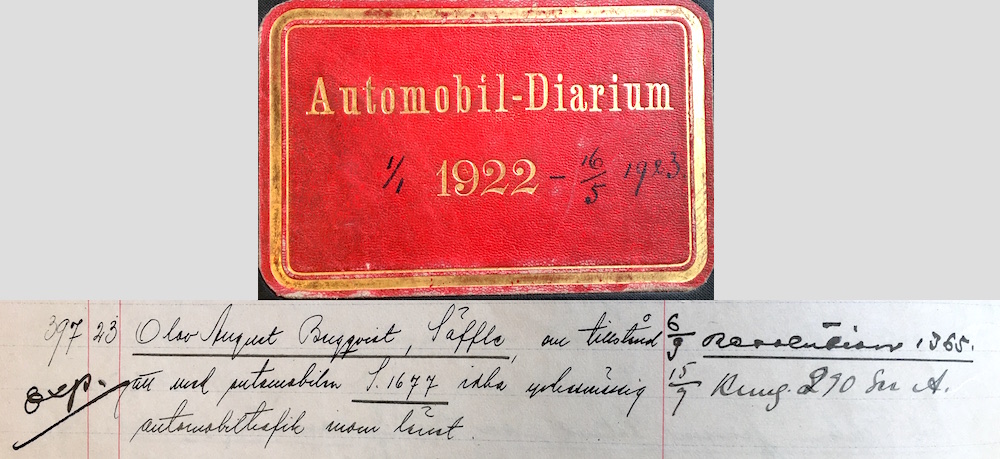 Automobil-Diarium
1/1 1922 - 16/5 1923
397 23 Olov August Bergqvist, Säffle, om tillstånd 6/9 Resolution 1365.
exp. att med automobilen S. 1677 idka yrkesmässig 15/9 Kung. 290 Ser A.
automobiltrafik inom länet.